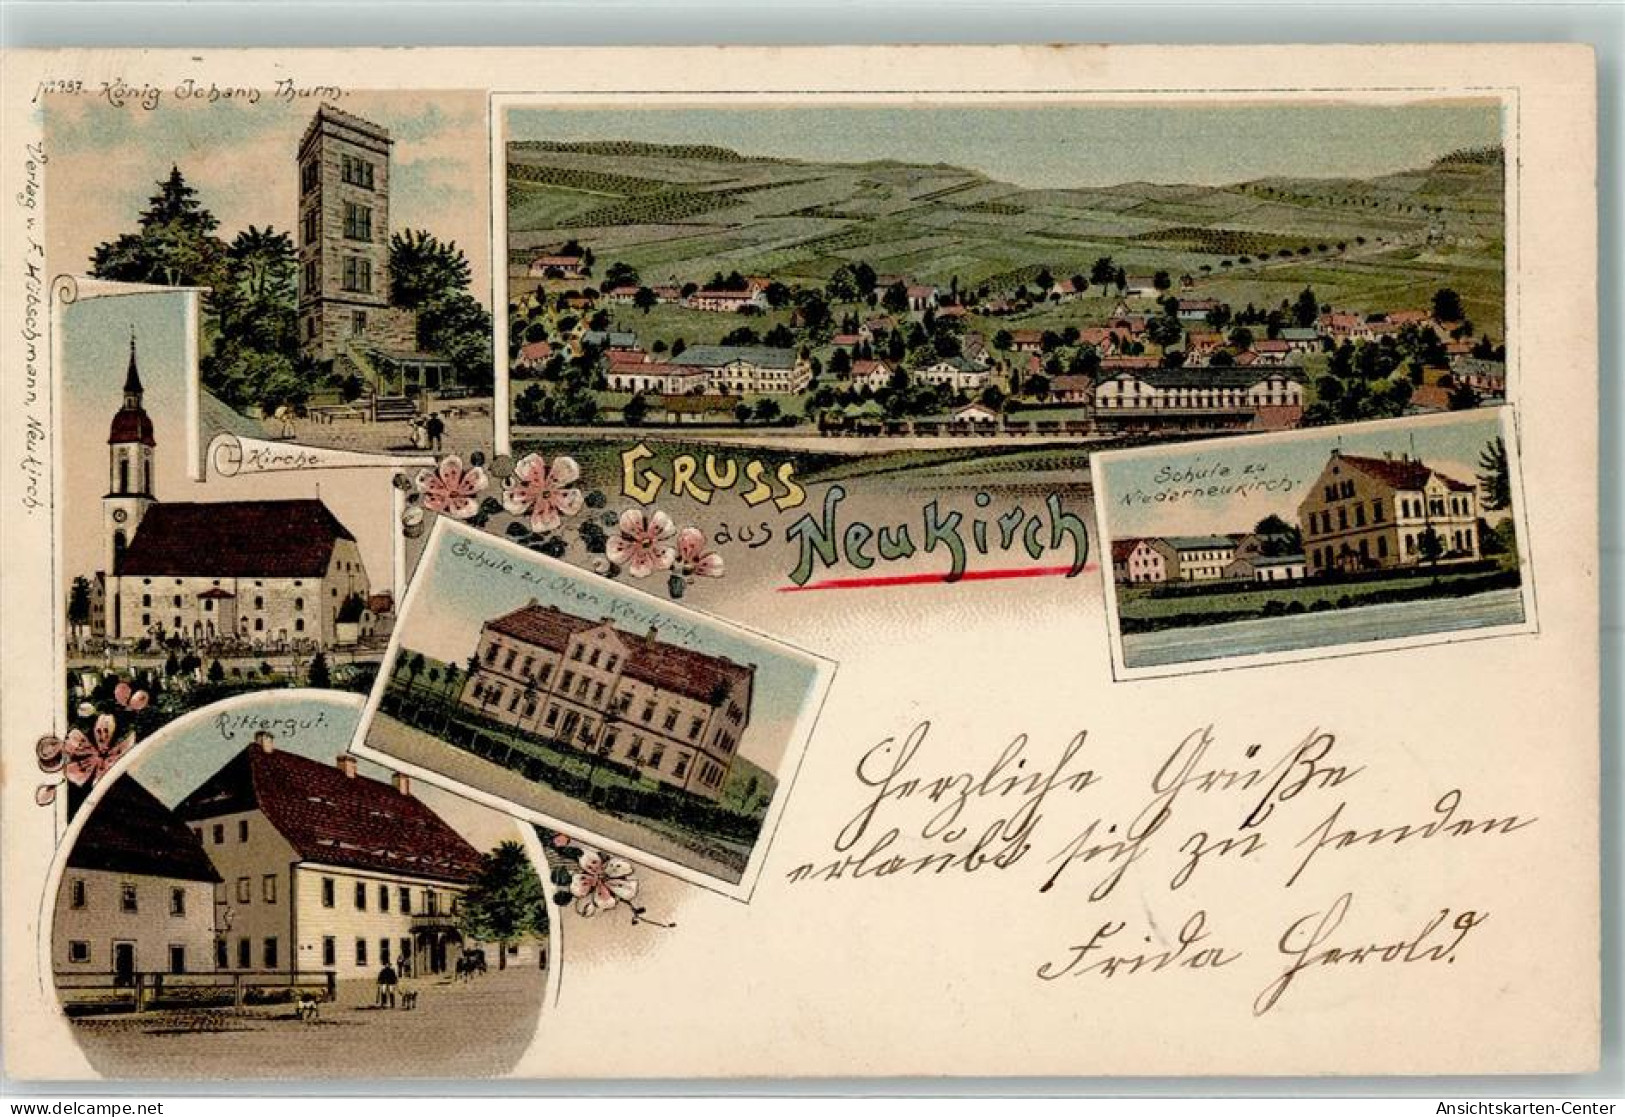 No 987. König Johann Thurm.
Verlag v. F. Hübschmann, Neukirch.
Kirche.
GRUSS
aus Neukirch
Schule zu
Niederneukirch.
Schule zu Ober Neukirch.
Rittergut.
Herzliche Grüße
erlaubt sich zu senden
Frida Herold.
Ansichtskarten-Center